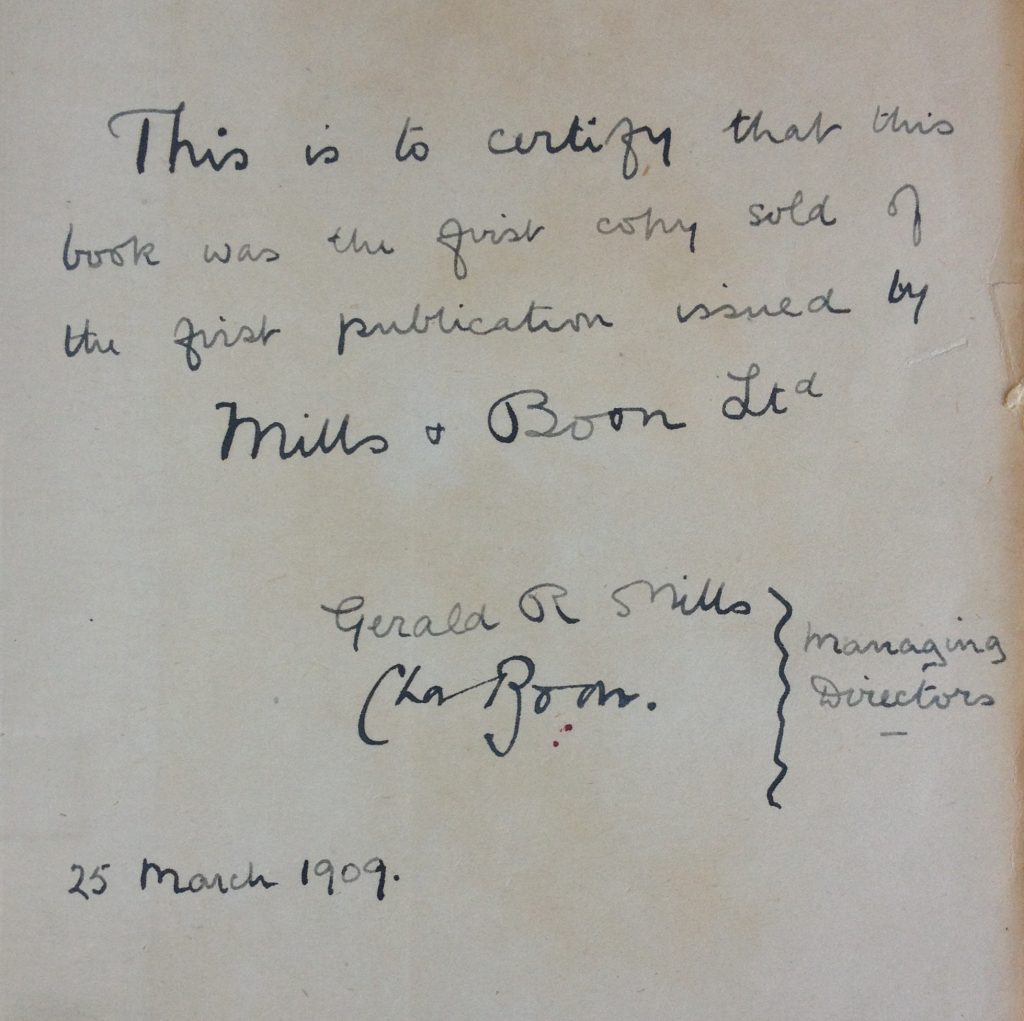 This is to certify that this
book was the first copy sold of
the first publication issued by
Mills & Boon Ltd
Gerald R Mills
Managing
Chas Boon.
Directors
25 March 1909.